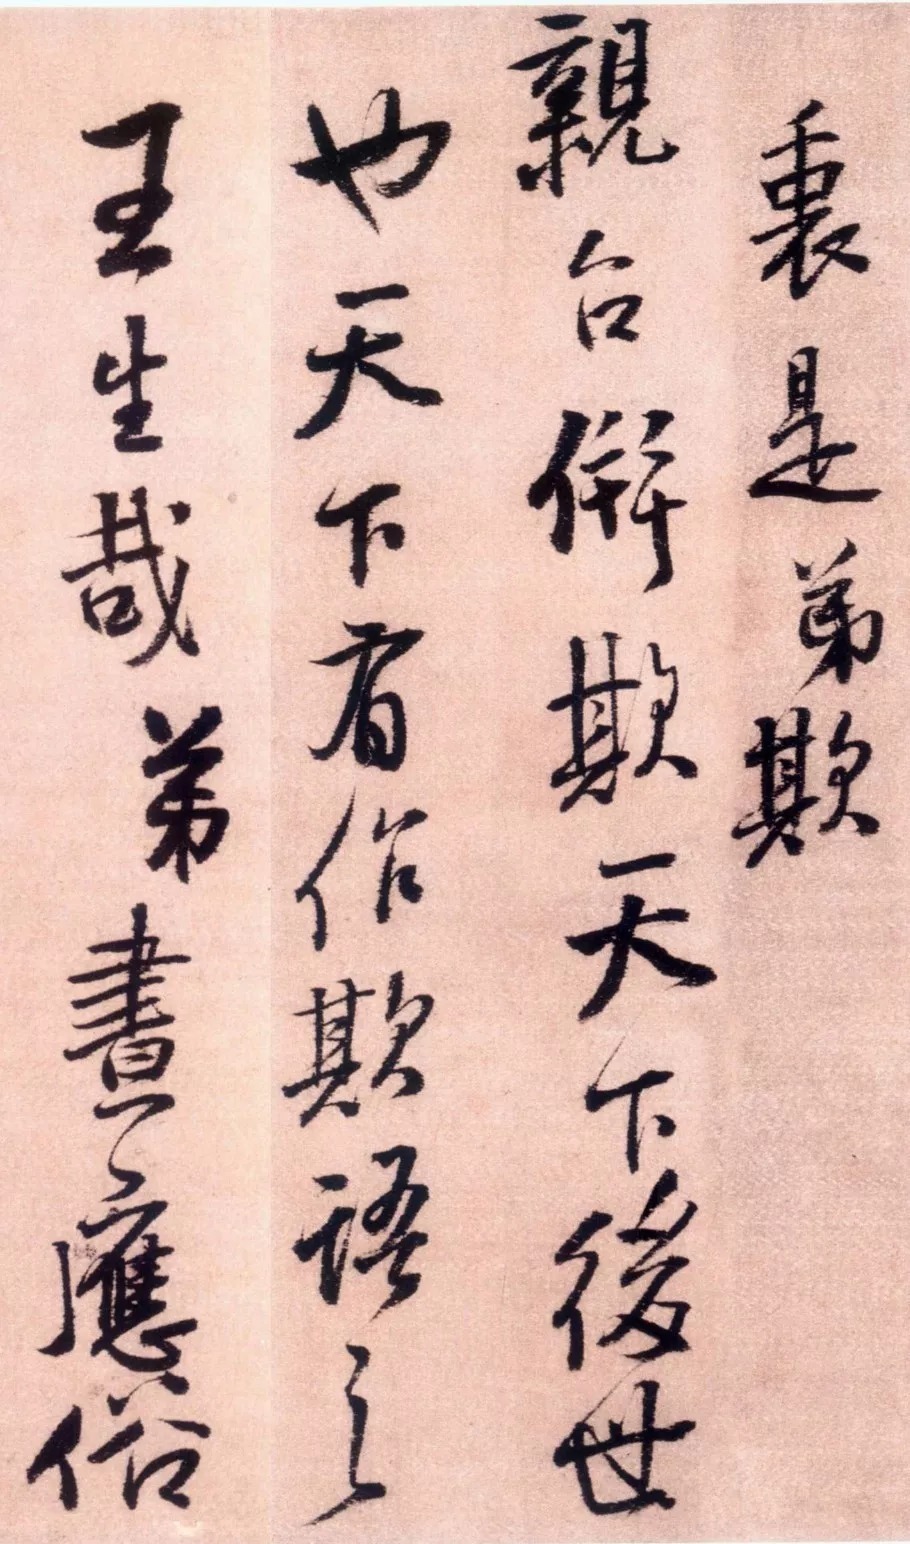 裏是弟欺
親台併欺天下後世
也天下有作欺語之
王生哉弟書應俗